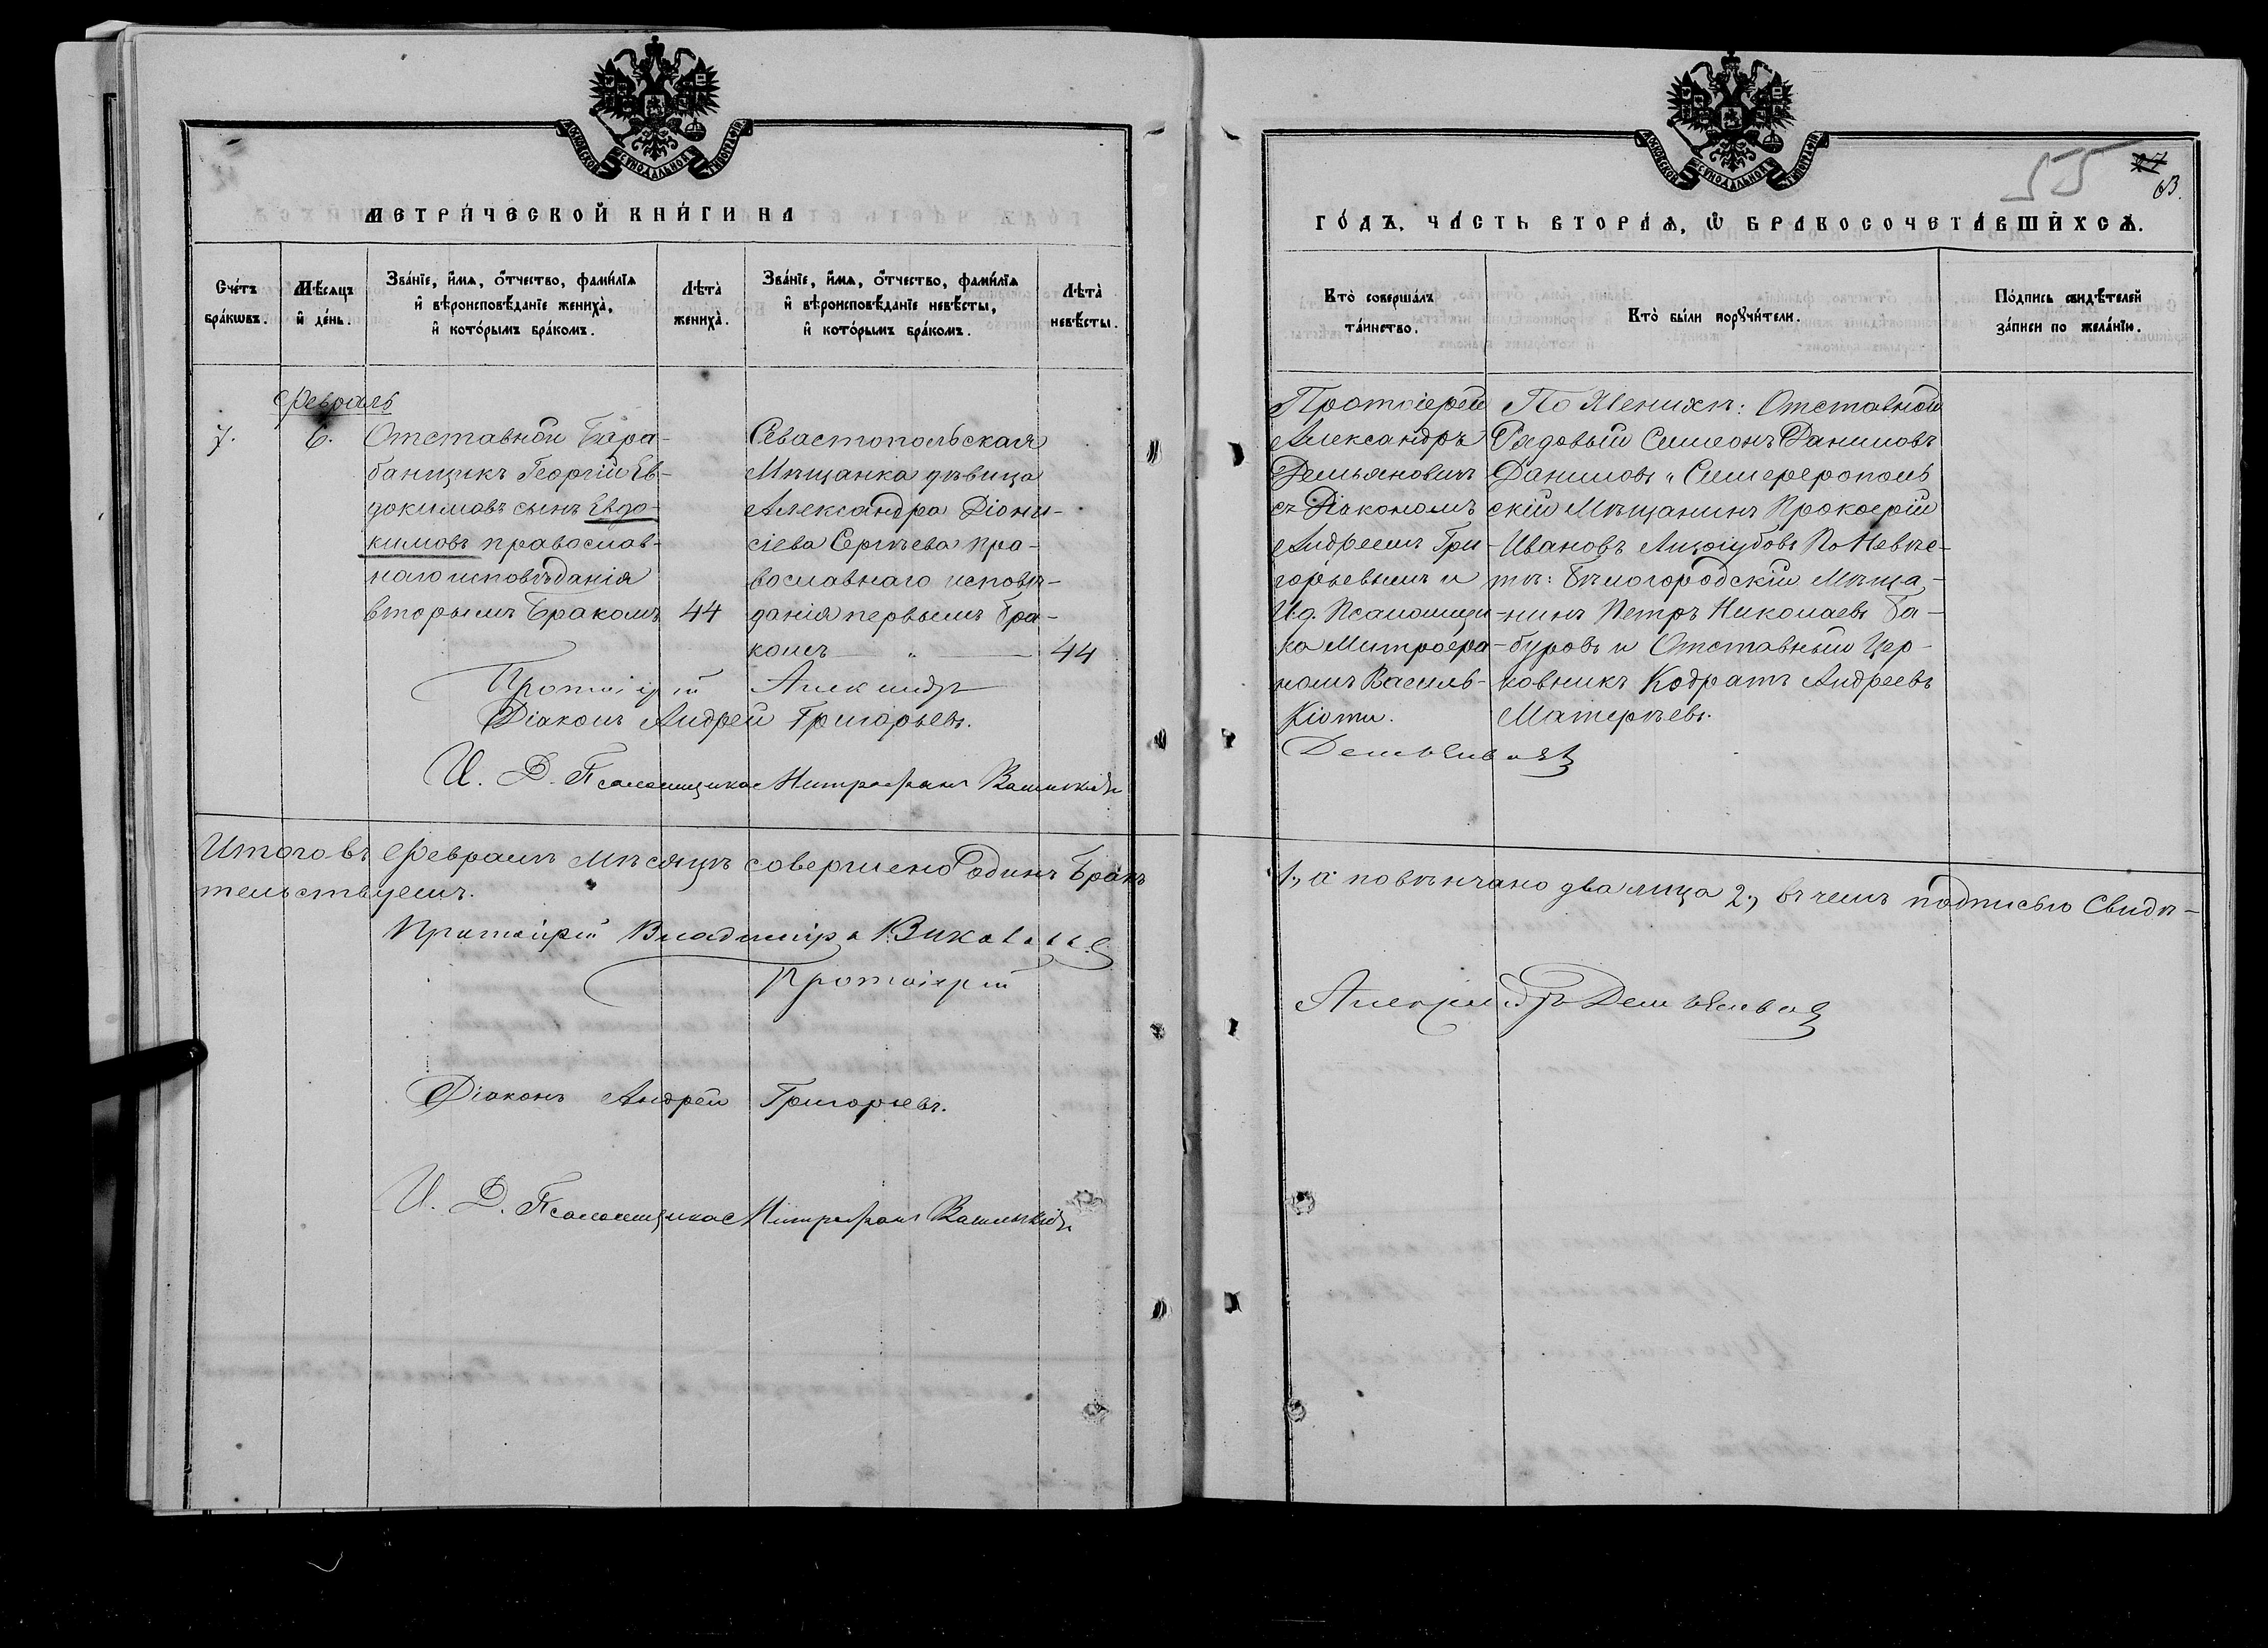 МОСКОВСКОЙ СѴНОДАЛЬНОЙ ТИПОГРАФІИ
МЕТРИ́ЧЕСКОЙ КНИ́ГИ НА
Сче́тъ бра́кѡвъ.
Мѣ́сяцъ и҆ де́нь.
Зва́нїе, и҆́мѧ, ѻ҆́тчество, фами́лїѧ
и҆ вѣроисповѣ́данїе жениха̀,
и҆ кото́рымъ бра́комъ.
Лѣта̀ жениха̀.
Зва́нїе, и҆́мѧ, ѻ҆́тчество, фами́лїѧ
и҆ вѣроисповѣ́данїе невѣ́сты,
и҆ кото́рымъ бра́комъ.
Лѣта̀ невѣ́сты.
Февраль
7.
6.
Отставной Бара-
банщикъ Георгій Ев-
докимовъ сынъ Евдо-
кимовъ православ-
наго исповѣданія
вторымъ бракомъ
44
Севастопольская
Мѣщанка дѣвица
Александра Діони-
сіева Сергѣева пра-
вославнаго исповѣ-
данія первымъ бра-
комъ — „ —
44
Протоіерей Александръ
Діаконъ Андрей Григорьевъ.
И. Д. Псаломщика Митрофанъ
Итого въ Февралѣ мѣсяцѣ совершено одинъ бракъ
тельствуемъ.
Протоіерей Владиміръ
Протоіерей
Діаконъ Андрей Григорьевъ.
И. Д. Псаломщика Митрофанъ
МОСКОВСКОЙ СѴНОДАЛЬНОЙ ТИПОГРАФІИ
55
27
63.
ГО́ДЪ, ЧА́СТЬ ВТОРА́Ѧ, Ѡ҆ БРАКОСОЧЕТА́ВШИХСѦ.
Кто̀ соверша́лъ
та́инство.
Кто̀ бы́ли порꙋчи́тели.
По́дпись свидѣ́телей
за́писи по жела́нїю.
Протоіерей
Александръ
Демьяновичъ
съ Діакономъ
Андреемъ Гри-
горьевымъ и
И.д. Псаломщи-
ка Митрофа-
номъ Василь-
Кіоти.
По Женихѣ: Отставной
Рядовый Симеонъ Даниловъ
Даниловъ „ Симферополь
скій Мѣщанинъ Прокофій
Ивановъ По Невѣс-
тѣ: Бѣлогородскій Мѣща-
нинъ Петръ Николаевъ Ба-
буровъ и Отставный Цер-
ковникъ Кодратъ Андреевъ
Матерѣевъ.
1., а повѣнчано два лица 2., въ чемъ подписью Свидѣ-
Александръ